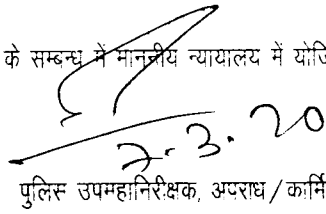 के सम्बन्ध में माननीय न्यायालय में योजि
7.3.20
पुलिस उपमहानिरीक्षक, अपराध/कार्मि